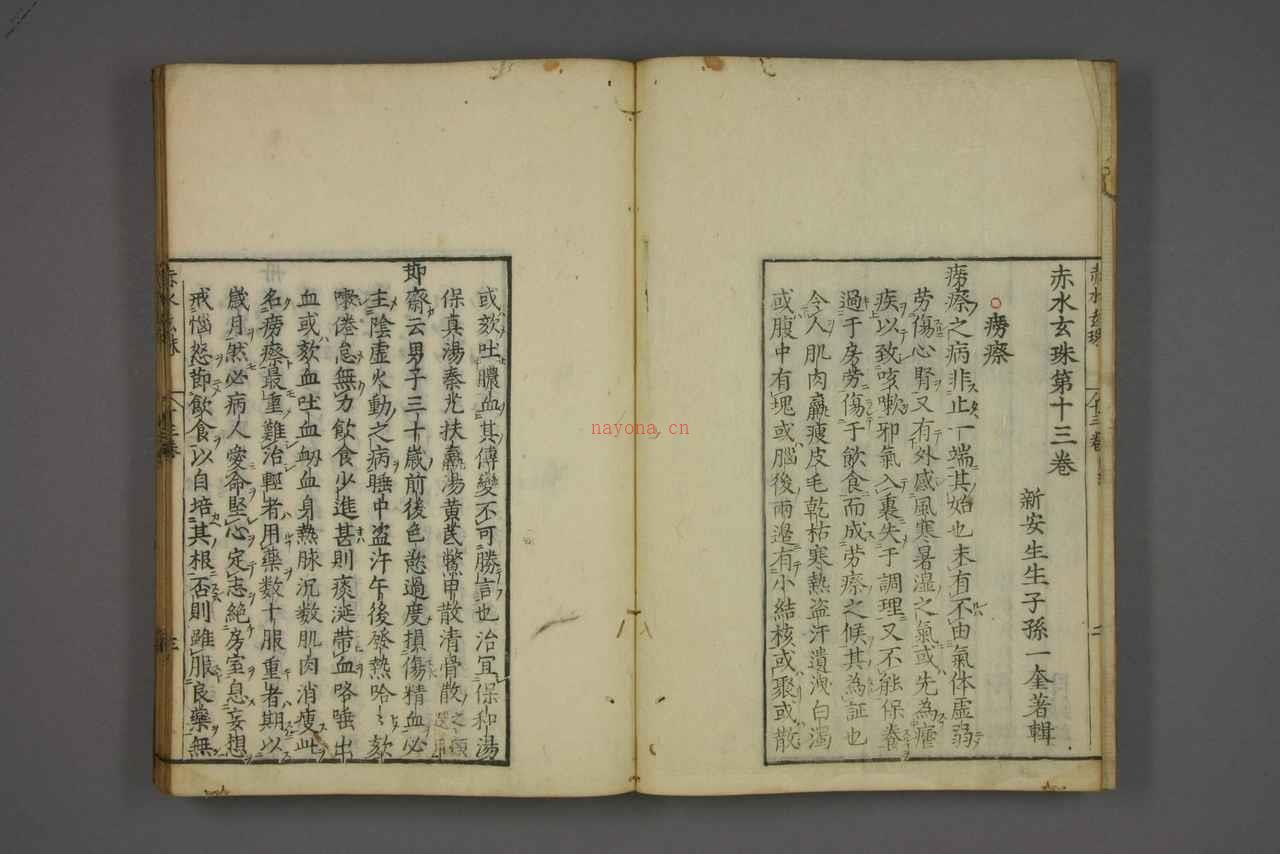 赤水玄珠第十三卷
新安生生子孫一奎著輯
癆瘵
癆瘵之病非止一端其始也未有不由氣体虛弱
劳傷心腎又有外感風寒暑湿之氣或先為瘧
疾以致咳嗽邪氣入裏失于調理又不能保養
過于房劳傷于飲食而成劳瘵之候其為証也
令人肌肉羸瘦皮毛乾枯寒熱盗汗遺洩白濁
或腹中有塊或腦後兩邉有小結核或聚或散
或欬吐膿血其傳變不可勝言也治宜保和湯
保真湯秦艽扶羸湯黄芪鱉甲散清骨散之類
節齋云男子三十歲前後色慾過度損傷精血必
主陰虛火動之病睡中盗汗午後發熱哈哈欬
嗽倦怠無力飲食少進甚則痰涎帶血咯唾出
血或欬血吐血衂血身熱脉沉数肌肉消瘦此
名癆瘵最重難治輕者用藥数十服重者期以
歲月然必病人愛命堅心定志絕房室息妄想
戒惱怒節飲食以自培其根否則雖服良藥無
nayona.cn